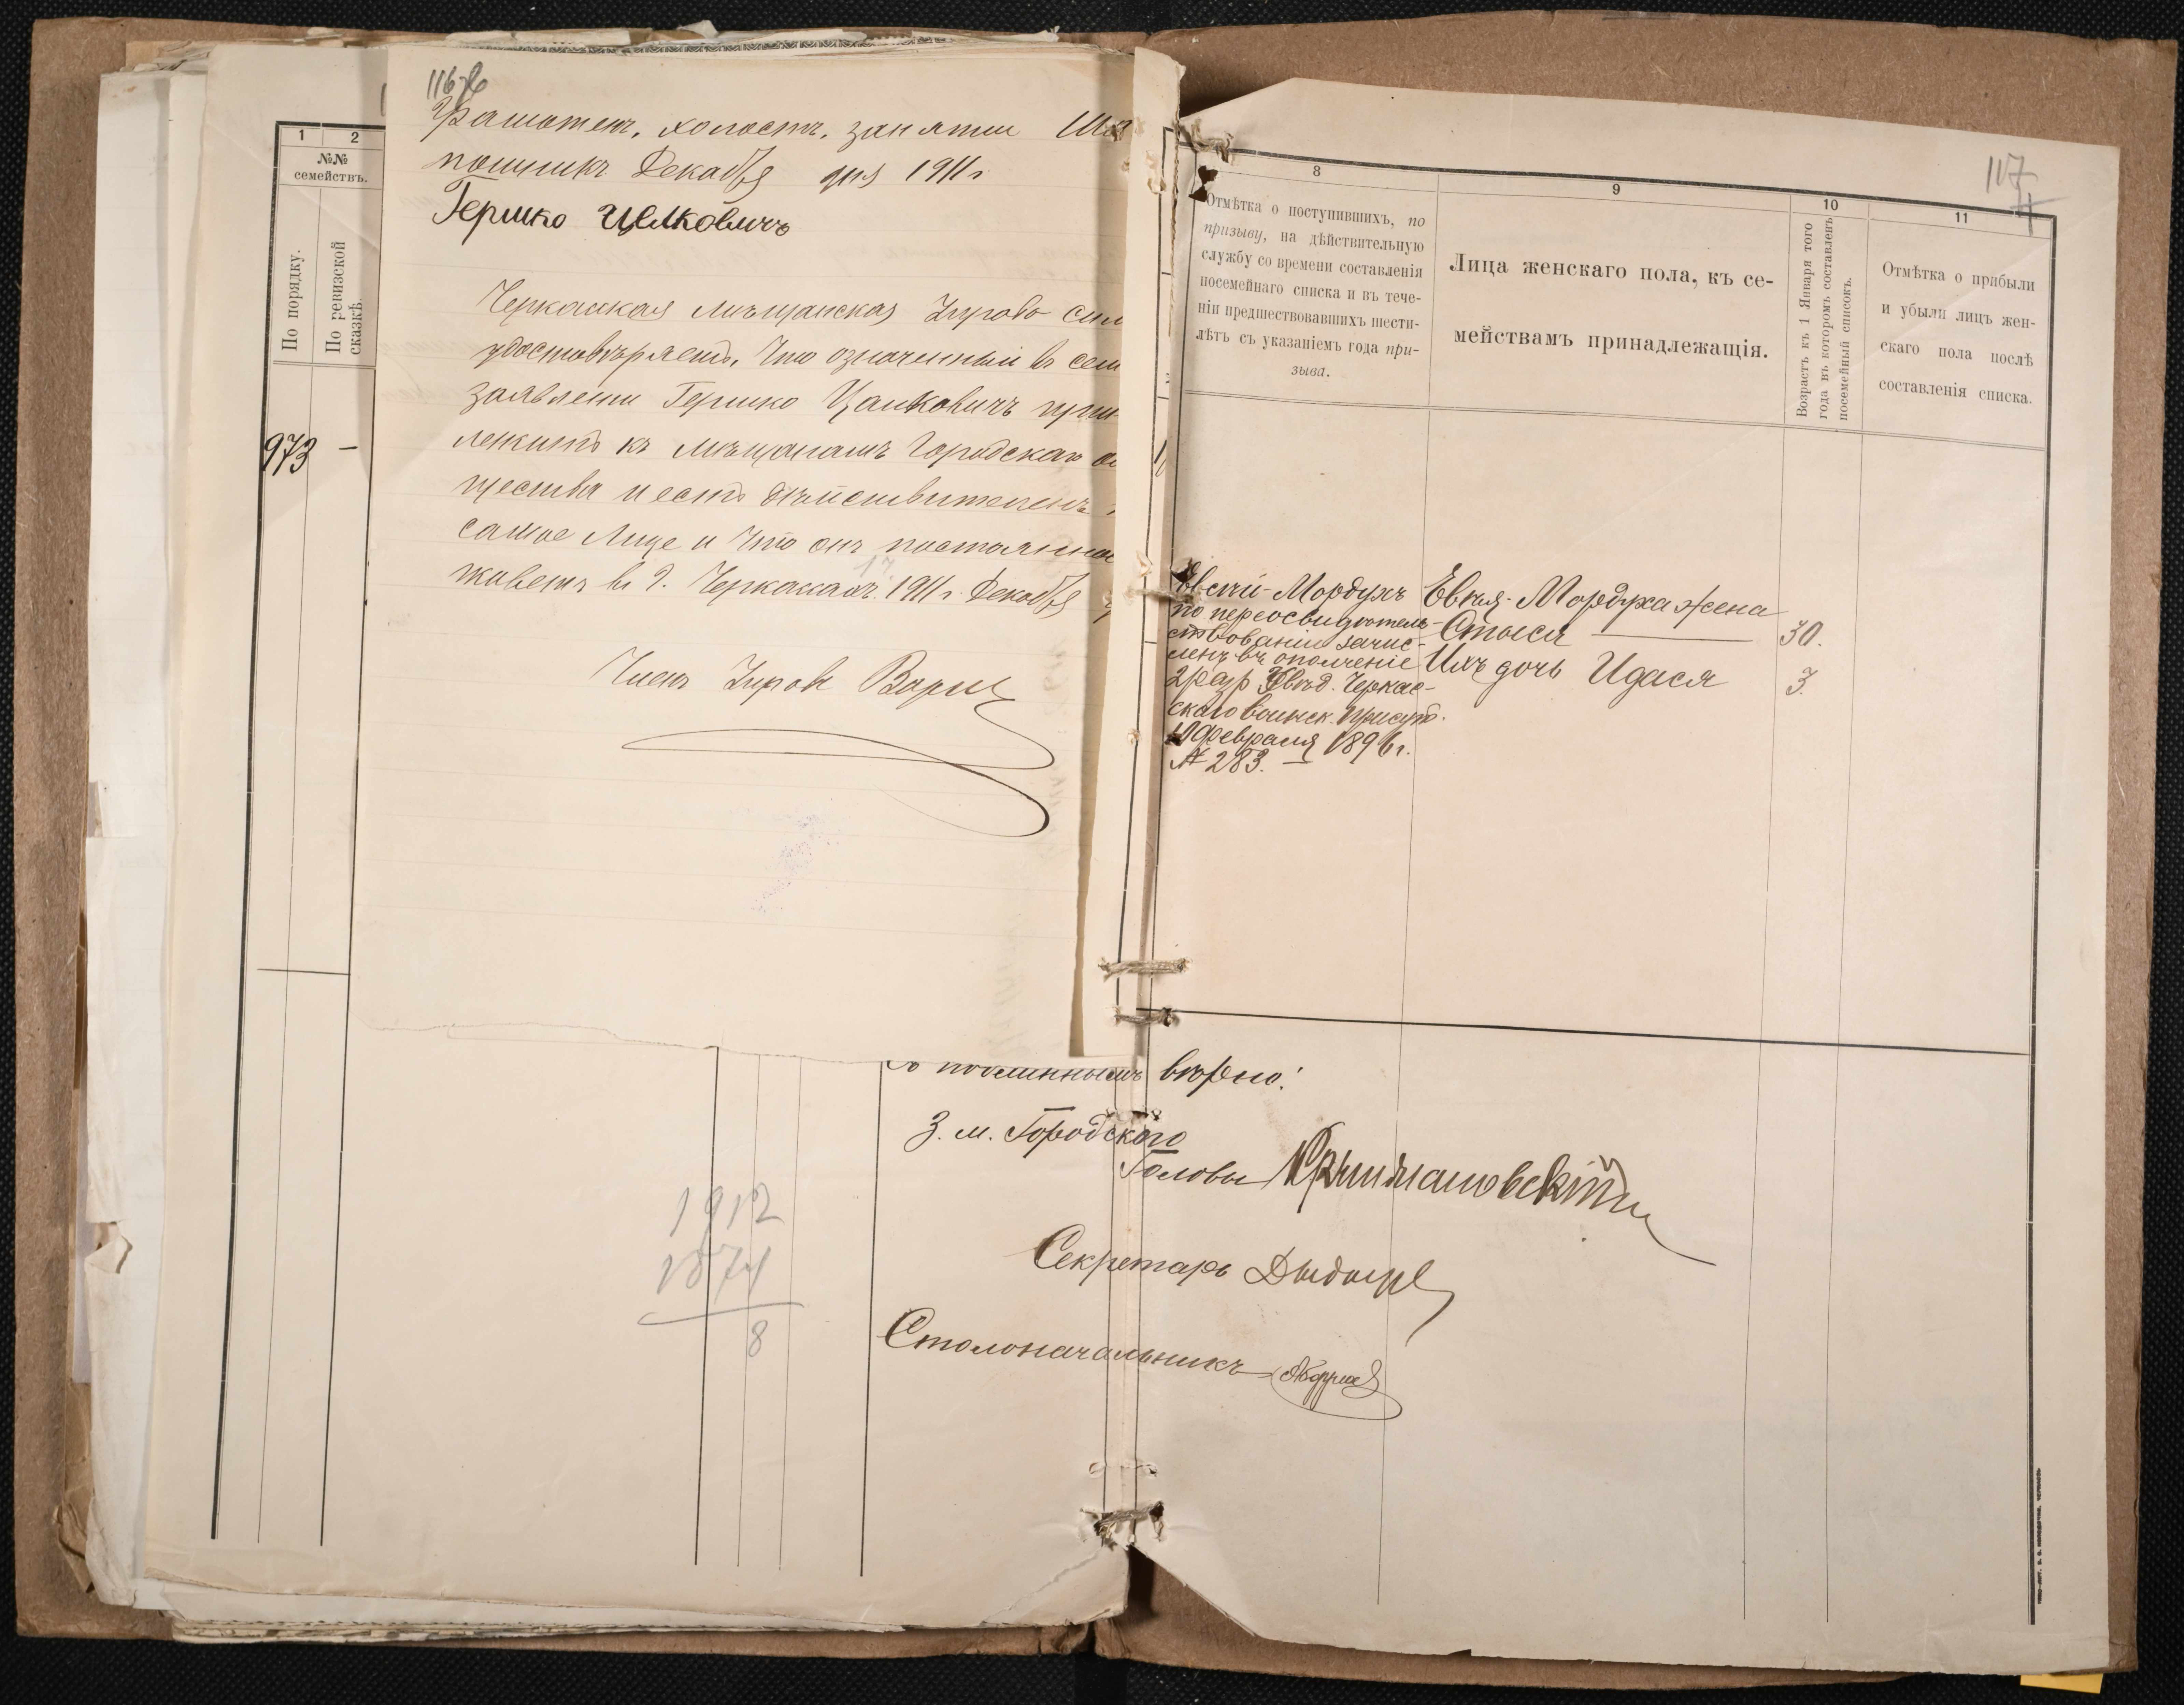 116
Грамотен, холостъ, занятии Ша
пошникъ Декабря дня 1911 г
Гершко Целковичъ
Черкаская мѣщанская Управа сим
удостовѣряетъ, что означенный въ сем
заявлении Гершко Цалковичъ при
лежитъ къ мѣщанамъ Городскаго об
щества и есть дѣйствителенъ
самое Лице и что онъ постоянно
живетъ въ г. Черкасахъ. 1911 г. Декабря
Членъ Управы
1
2
№№
семействъ.
По порядку.
По ревизской
сказкѣ.
973 —
117
8
Отмѣтка о поступившихъ, по
призыву, на дѣйствительную
службу со времени составленія
посемейнаго списка и въ тече-
ніи предшествовавшихъ шести-
лѣтъ съ указаніемъ года при-
зыва.
9
Лица женскаго пола, къ се-
мействамъ принадлежащія.
10
Возрастъ къ 1 Января того
года въ которомъ составленъ
посемейный списокъ.
11
Отмѣтка о прибыли
и убыли лицъ жен-
скаго пола послѣ
составленія списка.
Евсѣй-Мордухъ
по переосвидѣтель-
ствованіи зачис-
ленъ въ ополченіе
2 разр Увѣд. Черкас-
скаго воинск. присут.
10 февраля 1896 г.
№ 283. —
Евсѣя-Мордуха жена
Стыся 30.
Ихъ дочь Идася 3.
Съ подлиннымъ вѣрно!
З. м. Городского
Головы
Секретарь
Столоначальникъ
1912
1874
8